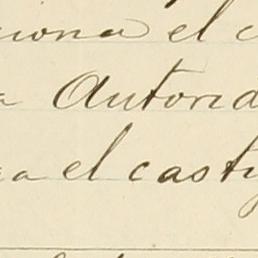 ciona el c
a Autorid
ra el casti